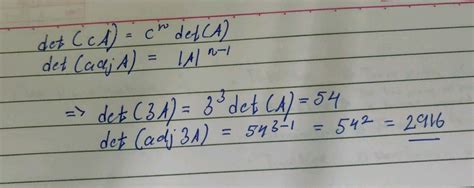 det(cA) = cⁿ det(A)
det(adjA) = |A|ⁿ⁻¹
=> det(3A) = 3³ det(A) = 54
det(adj 3A) = 54³⁻¹ = 54² = 2916